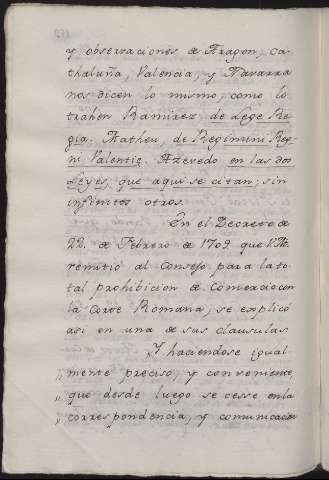 y observaciones de Aragon, Ca-
thaluña, Valencia, y Navarra
nos dicen lo mismo, como lo
trahen Ramirez de Lege Re-
gia. Matheu, de Regimini Reg-
ni Valentiæ. Azevedo en las dos
Leyes, que aqui se citan; sin
infinitos otros.
En el Decreto de
22. de Febrero de 1709. que V.M.
remitió al Consejo para la to-
tal prohibicion de Comercio con
la Corte Romana, se explicó
asi en una de sus clausulas
Y haciendose igual-
„ mente preciso, y conveniente,
„ que desde luego se cesse en la
„ correspondencia, y comunicacion